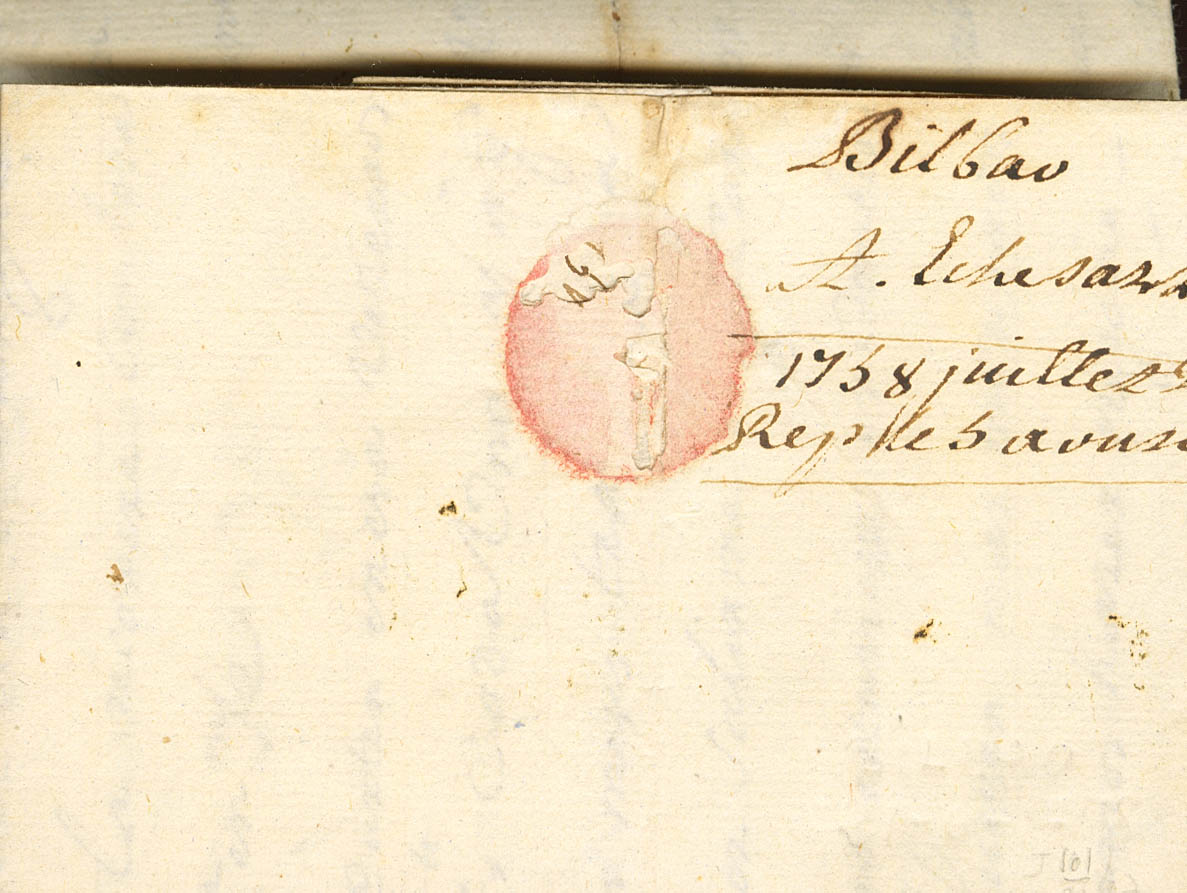 Bilbao
A. Echesarr
1758 juillet 2
Rep le 5 aoust